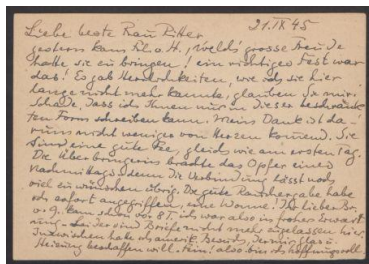 21.IX 45
Liebe beste Frau Ritter
gestern kam Ihr welch grosse Freude
hatte sie zu bringen! ein richtiges Fest war
das! Es gab Herrlichkeiten, wie ich sie hier
lange nicht mehr kannte, glauben Sie mir!
Schade, dass ich Ihnen nur in dieser beschränk-
ten Form schreiben kann. Mein Dank ist da-
rum nicht weniger von Herzen kommend. Sie
sind eine gute Fee, gleich wie am ersten Tag.
Die Überbringerin brachte das Opfer eines
Nachmittags denn die Verbindung lässt noch
viel zu wünschen übrig. Die gute Rauchergabe habe
ich sofort angegriffen, eine Wonne! Ihr lieber Br.
v. 9. kam schon vor 8 T. ich war also in froher Erwart
ung – hier sind Briefe nicht mehr zugelassen hier,
Inzwischen habe ich amerik. Besuch, der mir Glas u.
Heizung beschaffen will. Fein! also bin ich hoffnungsvoll